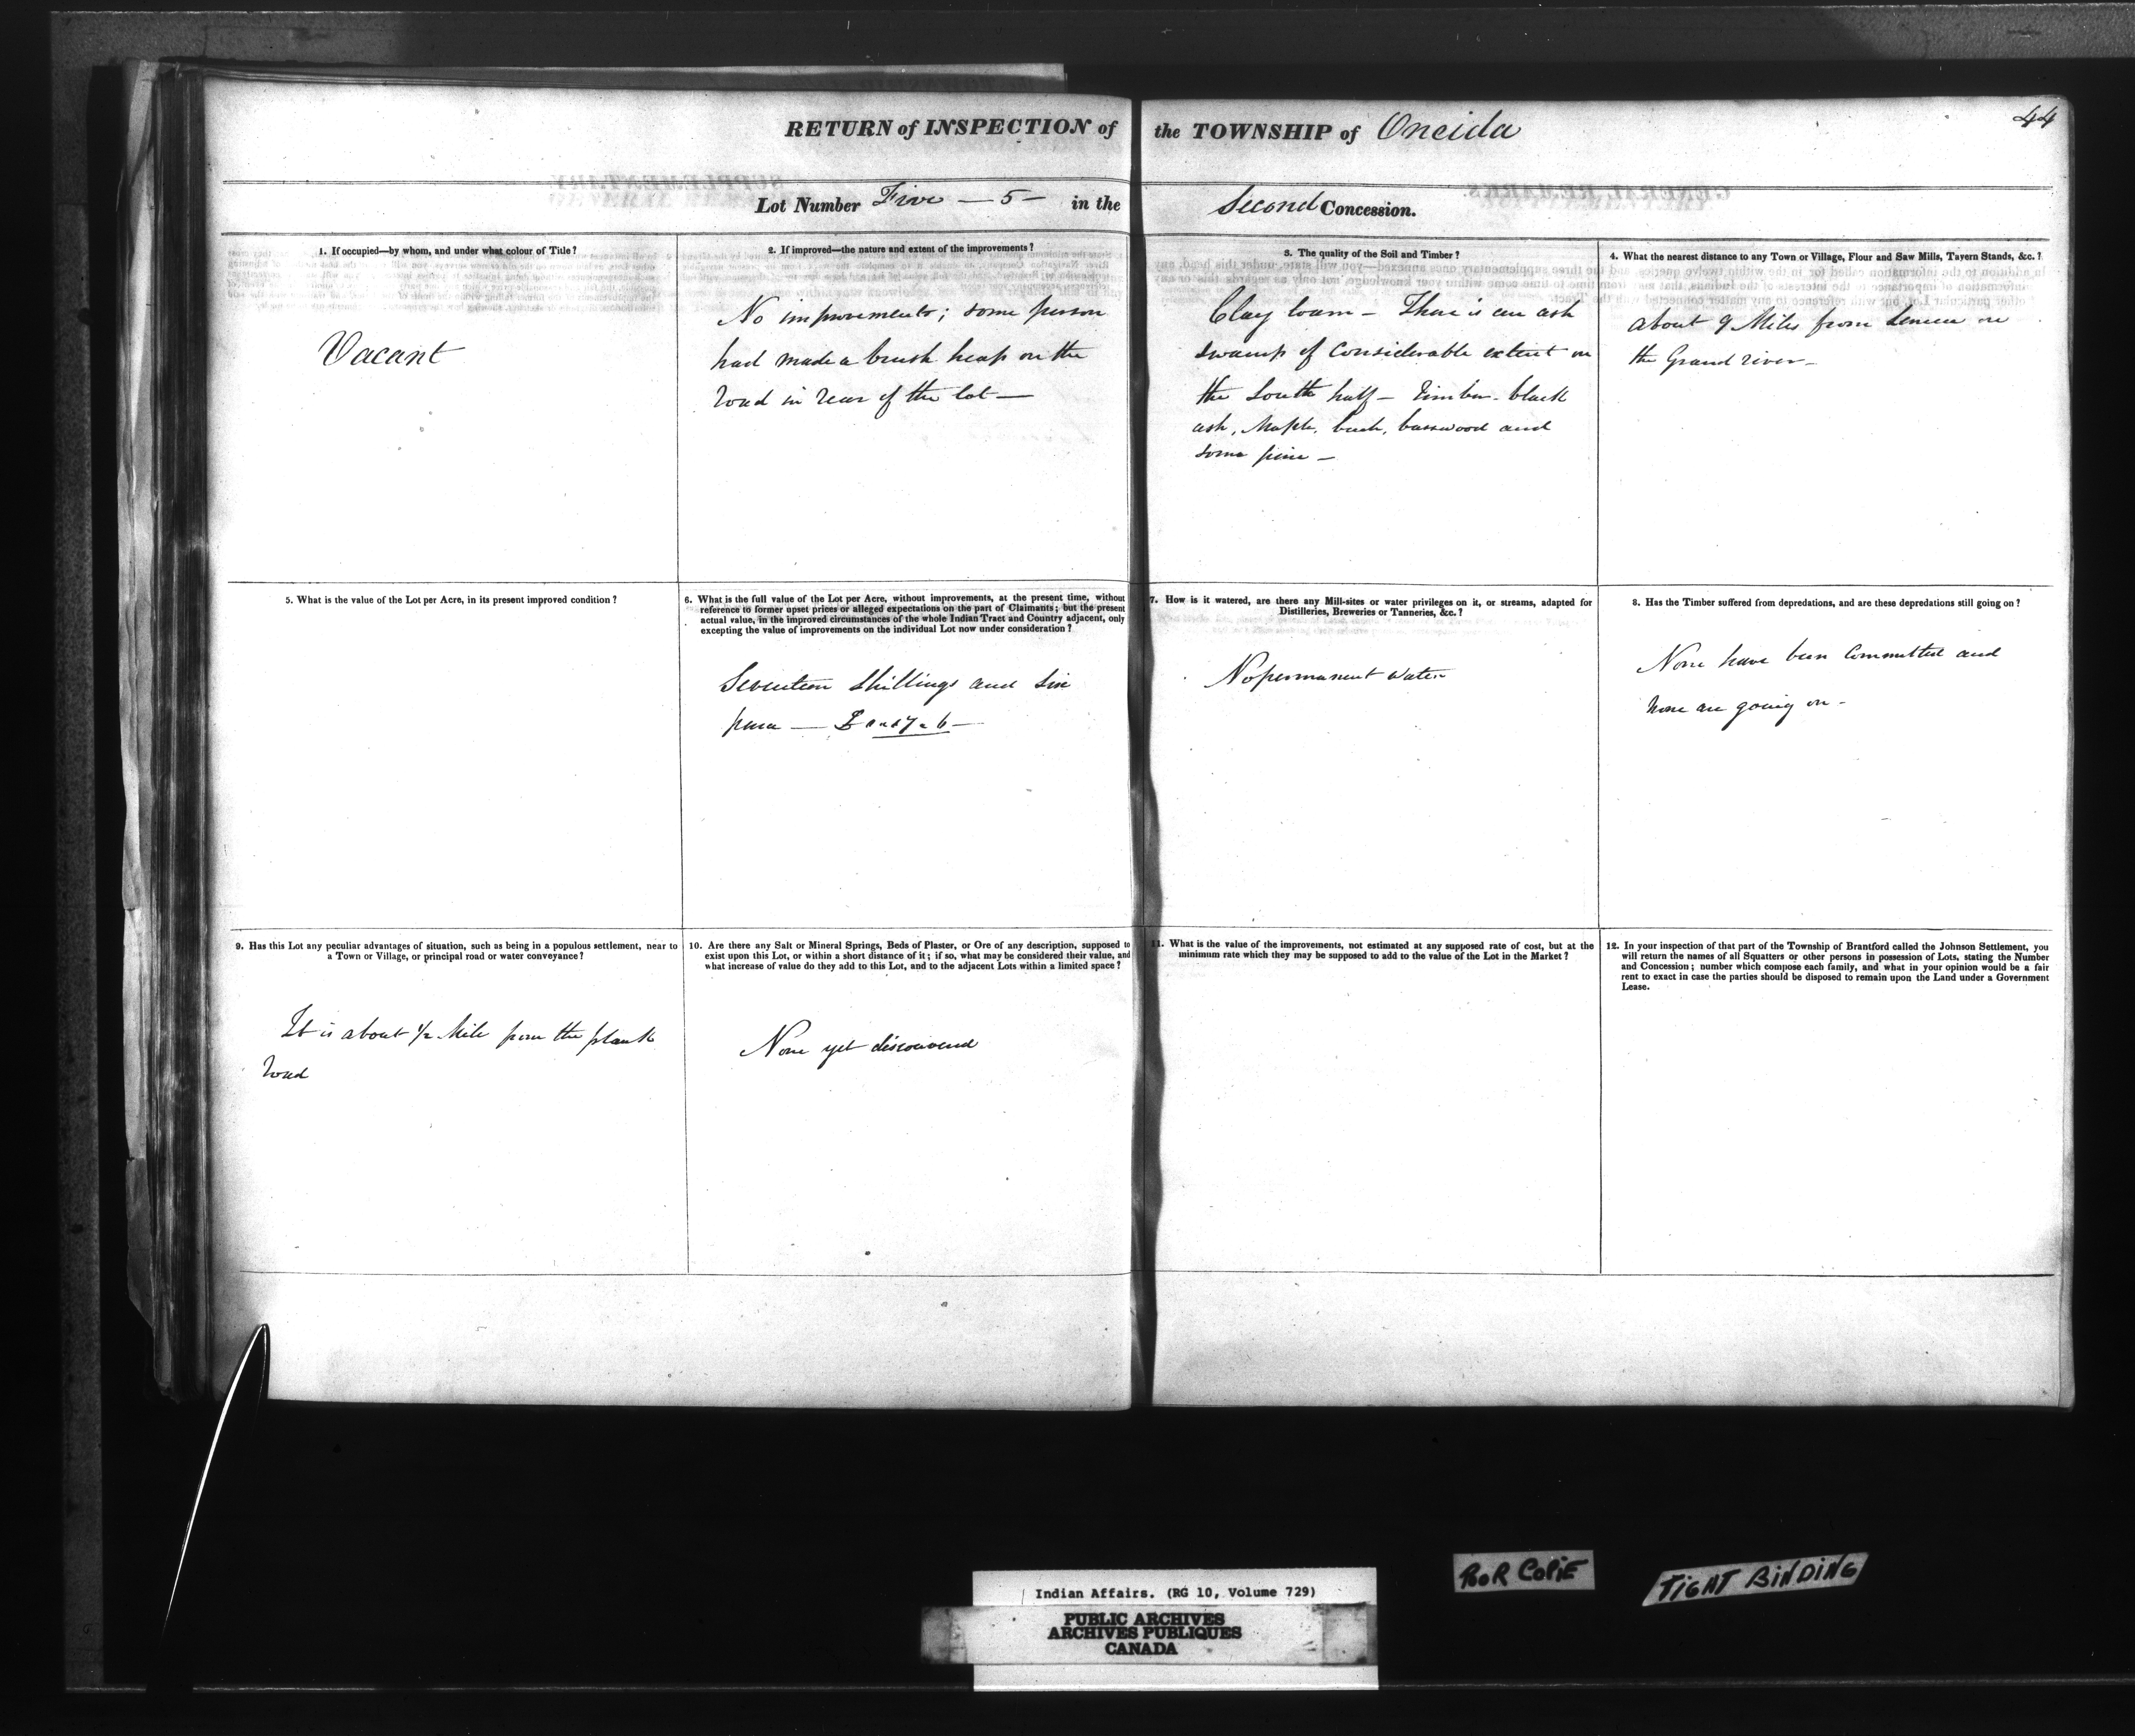 44
RETURN of INSPECTION of the TOWNSHIP of Oneida
Lot Number Five — 5 — in the Second Concession.
1. If occupied—by whom, and under what colour of Title?
Vacant
2. If improved—the nature and extent of the improvements?
No improvements; some person
had made a brush heap on the
road in rear of the lot —
3. The quality of the Soil and Timber?
Clay loam – There is an ash
swamp of Considerable extent on
the South half – Timber – black
ash, Maple, beech, basswood and
some pine –
4. What the nearest distance to any Town or Village, Flour and Saw Mills, Tavern Stands, &c.?
about 9 Miles from Seneca on
the Grand river –
5. What is the value of the Lot per Acre, in its present improved condition?
6. What is the full value of the Lot per Acre, without improvements, at the present time, without
reference to former upset prices or alleged expectations on the part of Claimants; but the present
actual value, in the improved circumstances of the whole Indian Tract and Country adjacent, only
excepting the value of improvements on the individual Lot now under consideration?
Seventeen Shillings and Six
pence — £0 - 17 - 6 —
7. How is it watered, are there any Mill-sites or water privileges on it, or streams, adapted for
Distilleries, Breweries or Tanneries, &c.?
No permanent water
8. Has the Timber suffered from depredations, and are these depredations still going on?
None have been Committed and
None are going on –
9. Has this Lot any peculiar advantages of situation, such as being in a populous settlement, near to
a Town or Village, or principal road or water conveyance?
It is about 1/2 Mile from the plank
road
10. Are there any Salt or Mineral Springs, Beds of Plaster, or Ore of any description, supposed to
exist upon this Lot, or within a short distance of it; if so, what may be considered their value, and
what increase of value do they add to this Lot, and to the adjacent Lots within a limited space?
None yet discovered
11. What is the value of the improvements, not estimated at any supposed rate of cost, but at the
minimum rate which they may be supposed to add to the value of the Lot in the Market?
12. In your inspection of that part of the Township of Brantford called the Johnson Settlement, you
will return the names of all Squatters or other persons in possession of Lots, stating the Number
and Concession; number which compose each family, and what in your opinion would be a fair
rent to exact in case the parties should be disposed to remain upon the Land under a Government
Lease.
POOR COPIE
TIGHT BINDING
Indian Affairs. (RG 10, Volume 729)
PUBLIC ARCHIVES
ARCHIVES PUBLIQUES
CANADA